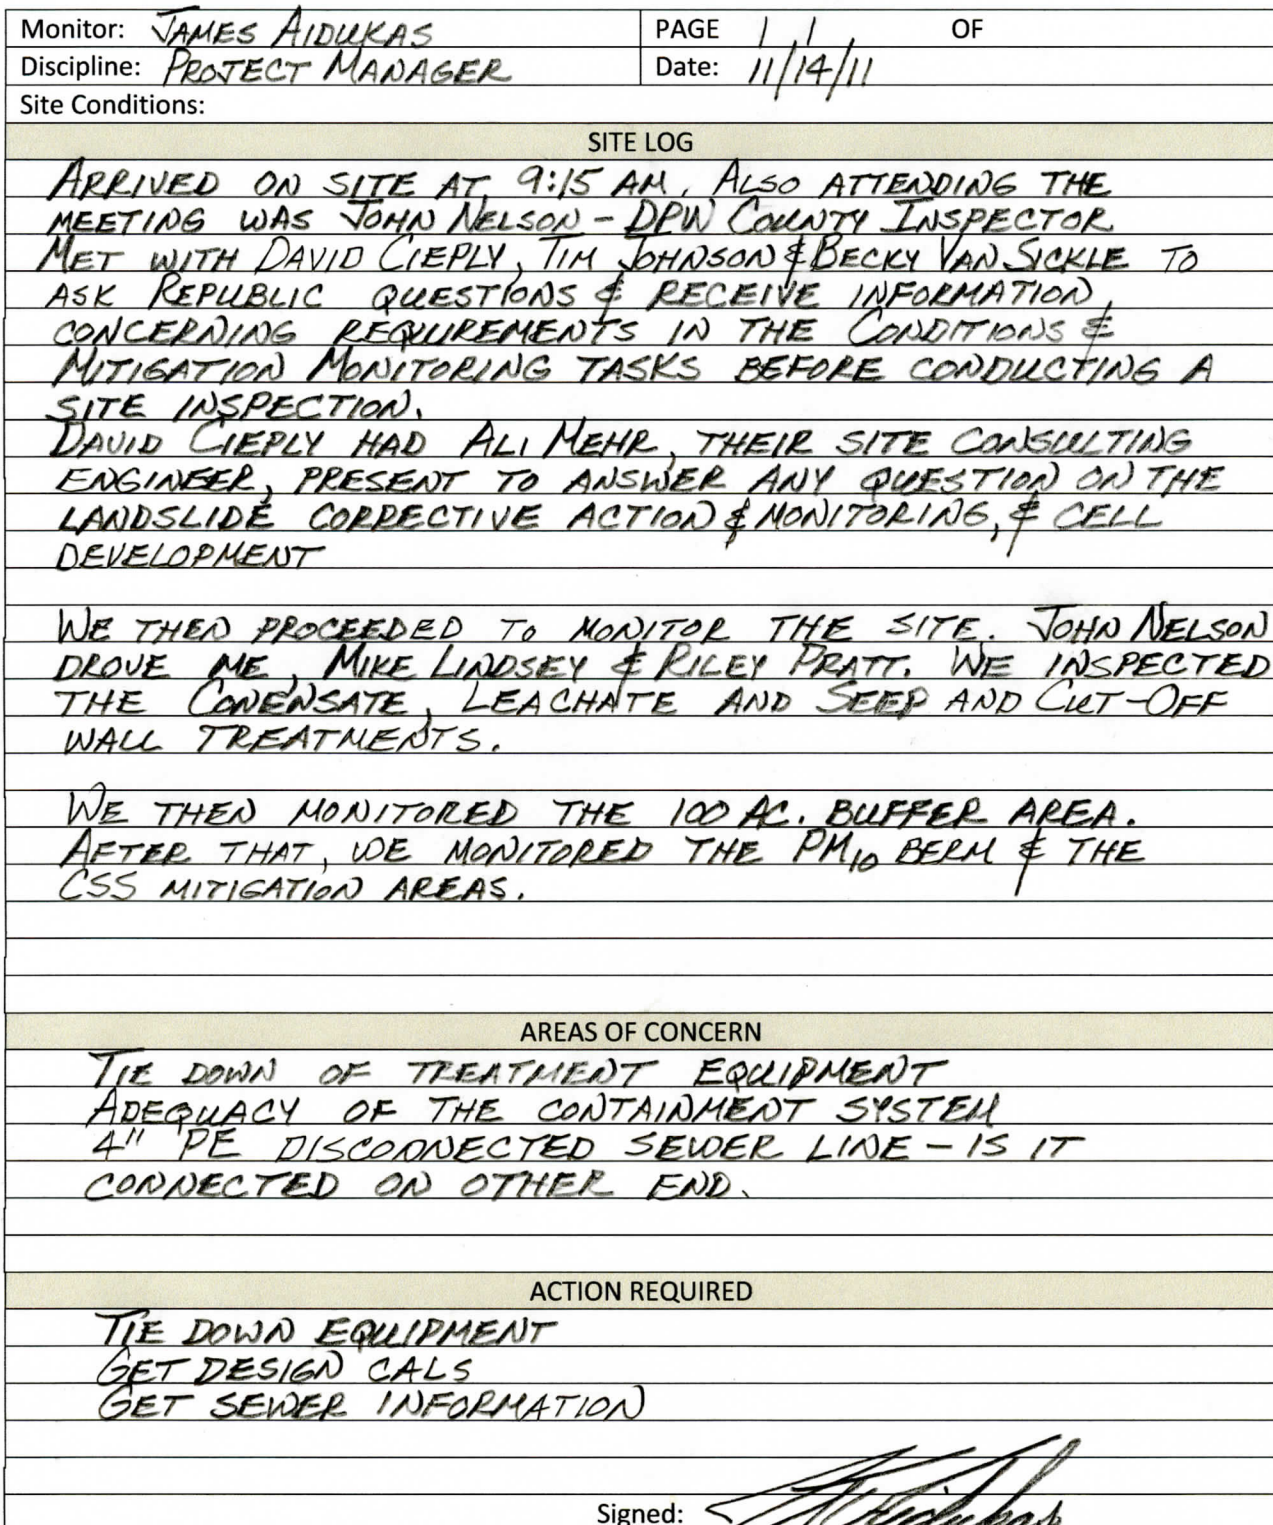 Monitor: JAMES AIDUKAS PAGE 1 1 OF
Discipline: PROJECT MANAGER Date: 11/14/11
Site Conditions:
SITE LOG
ARRIVED ON SITE AT 9:15 AM. ALSO ATTENDING THE
MEETING WAS JOHN NELSON - DPW COUNTY INSPECTOR
MET WITH DAVID CIEPLY, TIM JOHNSON & BECKY VAN SICKLE TO
ASK REPUBLIC QUESTIONS & RECEIVE INFORMATION
CONCERNING REQUIREMENTS IN THE CONDITIONS &
MITIGATION MONITORING TASKS BEFORE CONDUCTING A
SITE INSPECTION.
DAVID CIEPLY HAD ALI MEHR, THEIR SITE CONSULTING
ENGINEER, PRESENT TO ANSWER ANY QUESTION ON THE
LANDSLIDE CORRECTIVE ACTION & MONITORING, & CELL
DEVELOPMENT
WE THEN PROCEEDED TO MONITOR THE SITE. JOHN NELSON
DROVE ME, MIKE LINDSEY & RILEY PRATT. WE INSPECTED
THE CONENSATE, LEACHATE AND SEEP AND CUT-OFF
WALL TREATMENTS.
WE THEN MONITORED THE 100 AC. BUFFER AREA.
AFTER THAT, WE MONITORED THE PM10 BERM & THE
CSS MITIGATION AREAS.
AREAS OF CONCERN
TIE DOWN OF TREATMENT EQUIPMENT
ADEQUACY OF THE CONTAINMENT SYSTEM
4" PE DISCONNECTED SEWER LINE - IS IT
CONNECTED ON OTHER END.
ACTION REQUIRED
TIE DOWN EQUIPMENT
GET DESIGN CALS
GET SEWER INFORMATION
Signed: